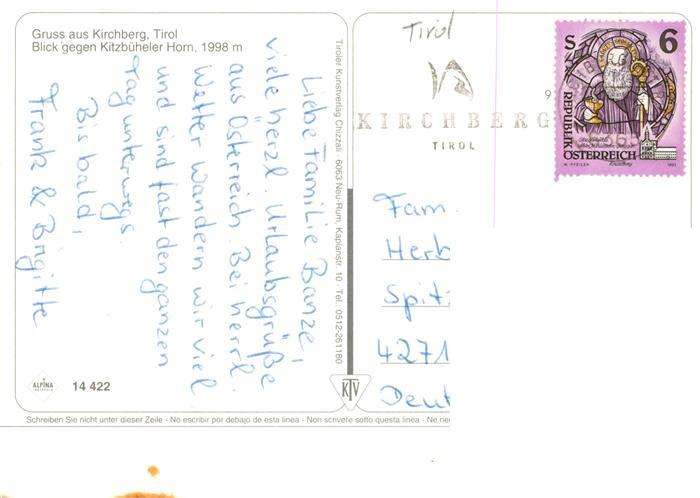 Gruss aus Kirchberg, Tirol
Blick gegen Kitzbüheler Horn, 1998 m
Liebe Familie Banze,
viele herzl. Urlaubsgrüße
aus Österreich. Bei herrl.
Wetter wandern wir viel
und sind fast den ganzen
Tag unterwegs.
Bis bald,
Frank & Brigitte
ALPINA
14 422
Tiroler Kunstverlag Chizzali · 6063 Neu-Rum, Kaplanstr. 10 · Tel. 0512-261180
KTV
Schreiben Sie nicht unter dieser Zeile - No escribir por debajo de esta linea - Non scrivete sotto questa linea - Ne
Tirol
9
KIRCHBERG
TIROL
S 6
REPUBLIK
ÖSTERREICH
Fam.
Herb
Spit
4271
Deut